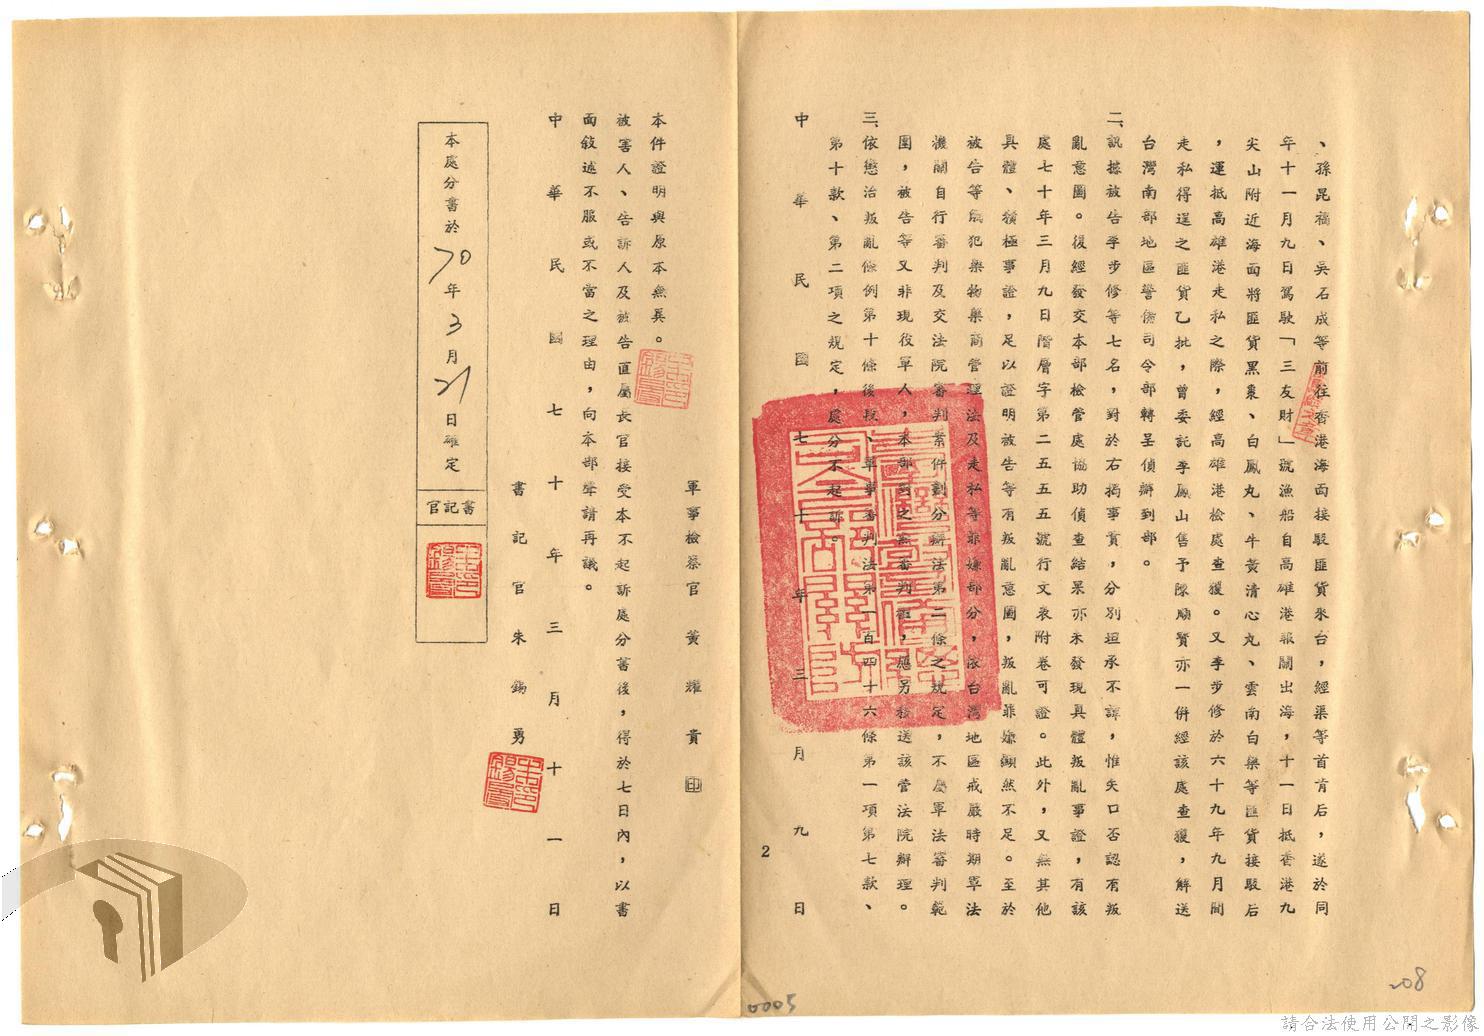 、孫昆福、吳石成等前往香港海面接駁匪貨來台，經渠等首肯后，遂於同
年十一月九日駕駛「三友財」號漁船自高雄港報關出海，十一日抵香港九
尖山附近海面將匪貨黑棗、白鳳丸、牛黃清心丸、雲南白藥等匪貨接駁后
，運抵高雄港走私之際，經高雄港檢處查獲。又李步修於六十九年九月間
走私得逞之匪貨乙批，曾委託李鳳山售予陳順賢亦一併經該處查獲，解送
台灣南部地區警備司令部轉呈偵辦到部。
二、訊據被告李步修等七名，對於右揭事實，分別坦承不諱，惟矢口否認有叛
亂意圖。復經發交本部檢管處協助偵查結果亦未發現具體叛亂事證，有該
處七十年三月九日階層字第二五五五號行文表附卷可證。此外，又無其他
具體、積極事證，足以證明被告等有叛亂意圖，叛亂罪嫌顯然不足。至於
被告等觸犯藥物藥商管理法及走私等罪嫌部分，依台灣地區戒嚴時期軍法
機關自行審判及交法院審判案件劃分辦法第二條之規定，不屬軍法審判範
圍，被告等又非現役軍人，本部對之無審判權，應另移送該管法院辦理。
三、依懲治叛亂條例第十條後段、軍事審判法第一百四十六條第一項第七款、
第十款、第二項之規定，處分不起訴。
中華民國七十年三月九日
2
軍事檢察官 黃耀貴 印
本件證明與原本無異。
被害人、告訴人及被告直屬長官接受本不起訴處分書後，得於七日內，以書
面敘述不服或不當之理由，向本部聲請再議。
中華民國七十年三月十一日
書記官 朱錫勇
本處分書於70年3月21日確定
書記官
0005
208
請合法使用公開之影像